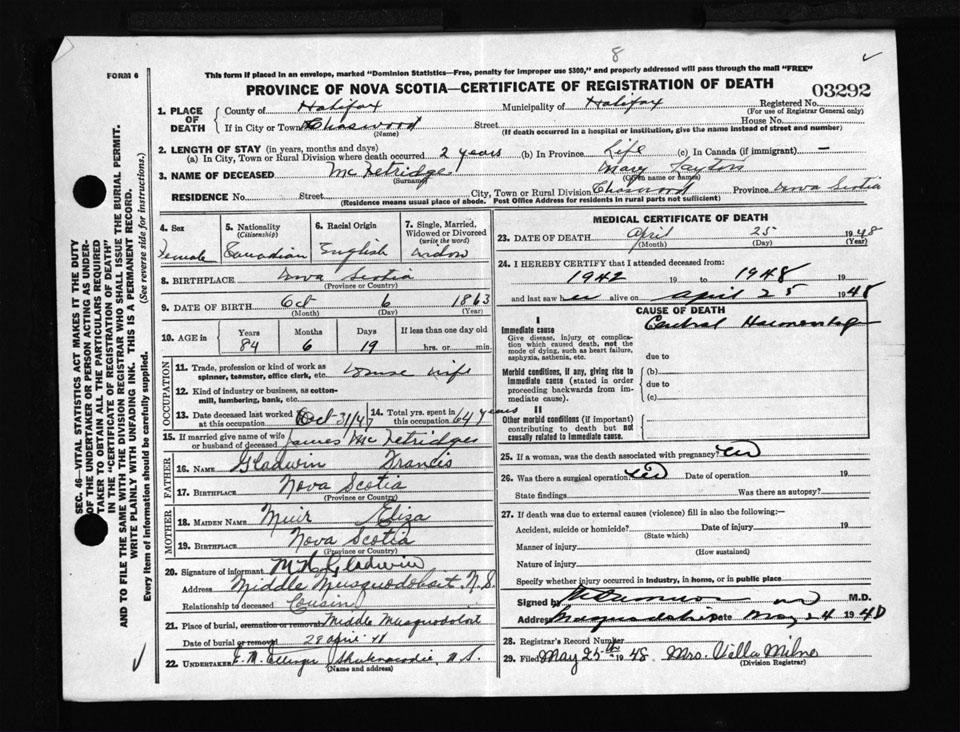 8
FORM 6
This form if placed in an envelope, marked "Dominion Statistics—Free, penalty for improper use $300," and properly addressed will pass through the mail "FREE"
PROVINCE OF NOVA SCOTIA—CERTIFICATE OF REGISTRATION OF DEATH
03292
1. PLACE OF DEATH
County of Halifax Municipality of Halifax Registered No.
(For use of Registrar General only)
If in City or Town Chaswood Street House No.
(Name) (If death occurred in a hospital or institution, give the name instead of street and number)
2. LENGTH OF STAY (in years, months and days)
(a) In City, Town or Rural Division where death occurred 2 years (b) In Province Life (c) In Canada (if immigrant) —
3. NAME OF DECEASED McFetridge Mary
(Surname) (Given name or names)
RESIDENCE No. Street City, Town or Rural Division Chaswood Province Nova Scotia
(Residence means usual place of abode. Post Office Address for residents in rural parts not sufficient)
SEC. 46—VITAL STATISTICS ACT MAKES IT THE DUTY
OF THE UNDERTAKER OR PERSON ACTING AS UNDER-
TAKER TO OBTAIN ALL THE PARTICULARS REQUIRED
IN THE "CERTIFICATE OF REGISTRATION OF DEATH"
AND TO FILE THE SAME WITH THE DIVISION REGISTRAR WHO SHALL ISSUE THE BURIAL PERMIT.
WRITE PLAINLY WITH UNFADING INK. THIS IS A PERMANENT RECORD.
Every item of information should be carefully supplied. (See reverse side for instructions.)
4. Sex
Female
5. Nationality
(Citizenship)
Canadian
6. Racial Origin
English
7. Single, Married, Widowed or Divorced
(write the word)
Widow
8. BIRTHPLACE Nova Scotia
(Province or Country)
9. DATE OF BIRTH Oct 6 1863
(Month) (Day) (Year)
10. AGE in Years Months Days If less than one day old
84 6 19 hrs. or min.
OCCUPATION
11. Trade, profession or kind of work as
spinner, teamster, office clerk, etc. House wife
12. Kind of industry or business, as cotton-
mill, lumbering, bank, etc.
13. Date deceased last worked at this occupation Oct 31/47
14. Total yrs. spent in this occupation 64 years
15. If married give name of wife
or husband of deceased James McFetridge
FATHER
16. NAME Gladwin Francis
17. BIRTHPLACE Nova Scotia
(Province or Country)
MOTHER
18. MAIDEN NAME Muir Eliza
19. BIRTHPLACE Nova Scotia
(Province or Country)
20. Signature of informant Gladwin
Address Middle Musquodoboit N.S.
Relationship to deceased Cousin
21. Place of burial, cremation or removal Middle Musquodoboit
Date of burial or removal 28 April 48
22. UNDERTAKER Shubenacadie, N.S.
(Name and Address)
MEDICAL CERTIFICATE OF DEATH
23. DATE OF DEATH April 25 1948
(Month) (Day) (Year)
24. I HEREBY CERTIFY that I attended deceased from:
1942 19 to 1948 19
and last saw alive on April 25 1948
CAUSE OF DEATH
I
Immediate cause
Give disease, injury or complica-
tion which caused death, not the
mode of dying, such as heart failure,
asphyxia, asthenia, etc.
due to
Morbid conditions, if any, giving rise to
immediate cause (stated in order
proceeding backwards from im-
mediate cause).
(b)
due to
(c)
II
Other morbid conditions (if important)
contributing to death but not
causally related to immediate cause.
25. If a woman, was the death associated with pregnancy?
26. Was there a surgical operation? Date of operation 19
State findings Was there an autopsy?
27. If death was due to external causes (violence) fill in also the following:—
Accident, suicide or homicide? Date of injury 19
(State which)
Manner of injury
(How sustained)
Nature of injury
Specify whether injury occurred in industry, in home, or in public place
Signed by M.D.
Address Date May 24 194
28. Registrar's Record Number
29. Filed May 25th 1948 Mrs. Milne
(Division Registrar)